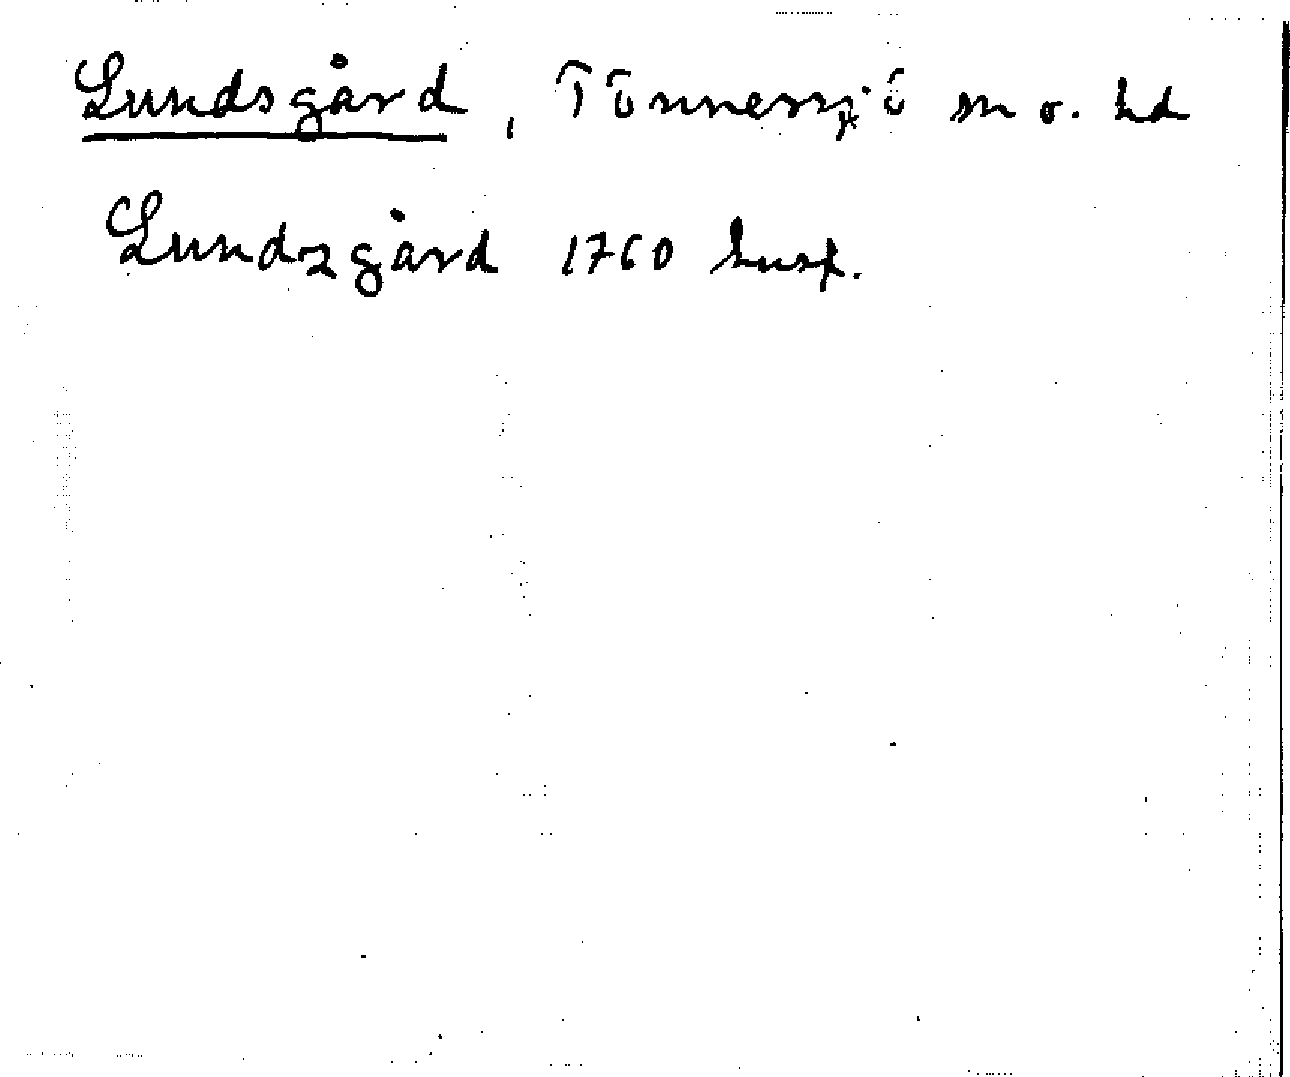 Lundsgård, Tönnersjö sn o. hd
Lundzgård 1760 husf.